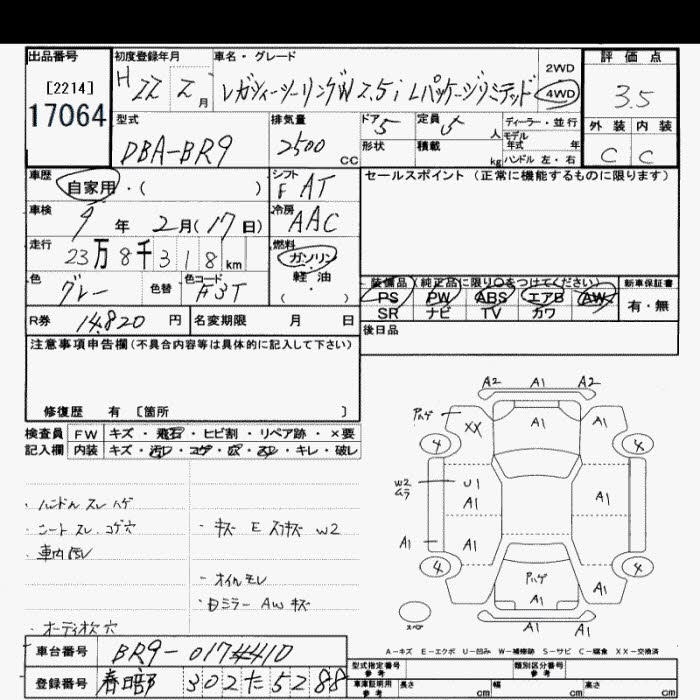 出品番号 初度登録年月 車名・グレード 評価点
[2214] H 22 2月 レガシィツーリングW 2.5i Lパッケージリミテッド 2WD 4WD 3.5
17064
型式 排気量 ドア 5 定員 5人 ディーラー・並行 外装 内装
DBA-BR9 2500 CC 形状 積載 kg モデル年式 年 ハンドル 左・右 C C
車歴 自家用・( ) シフト F AT セールスポイント(正常に機能するものに限ります)
車検 9年 2月(17日) 冷房 AAC
走行 23万8千318km 燃料 ガソリン・軽油 ( )
色 グレー 色替 色コード
装備品(純正品に限り○をつけてください) 新車保証書
PS PW ABS エアB AW 有・無
SR ナビ TV カワ
R券 14,820円 名変期限 月 日 後日品
注意事項申告欄(不具合内容等は具体的に記入して下さい)
修復歴 有 [箇所 ]
検査員 FW キズ・飛石・ヒビ割・リペア跡・×要
記入欄 内装 キズ・汚レ・コゲ・穴・スレ・キレ・破レ
・ハンドル スレ ハゲ
・シート スレ コゲ穴
・車内汚レ
・オーディオ 穴
・キズ E W2
・オイルモレ
・ミラー AW キズ
A2 A1 A2
Pハゲ XX A1 A1
4 4
W2 ムラ U1 A1 A1
A1 A1
4 4
Pハゲ A1 A1
スペア A1 A1
A-キズ E-エクボ U-凹み W-補修跡 S-サビ C-腐食 XX-交換済
車台番号 BR9-017
型式指定番号 参考 類別区分番号 参考
登録番号 春日部 302 た 5288
車庫証明用 参考 長さ cm 幅 cm 高さ cm